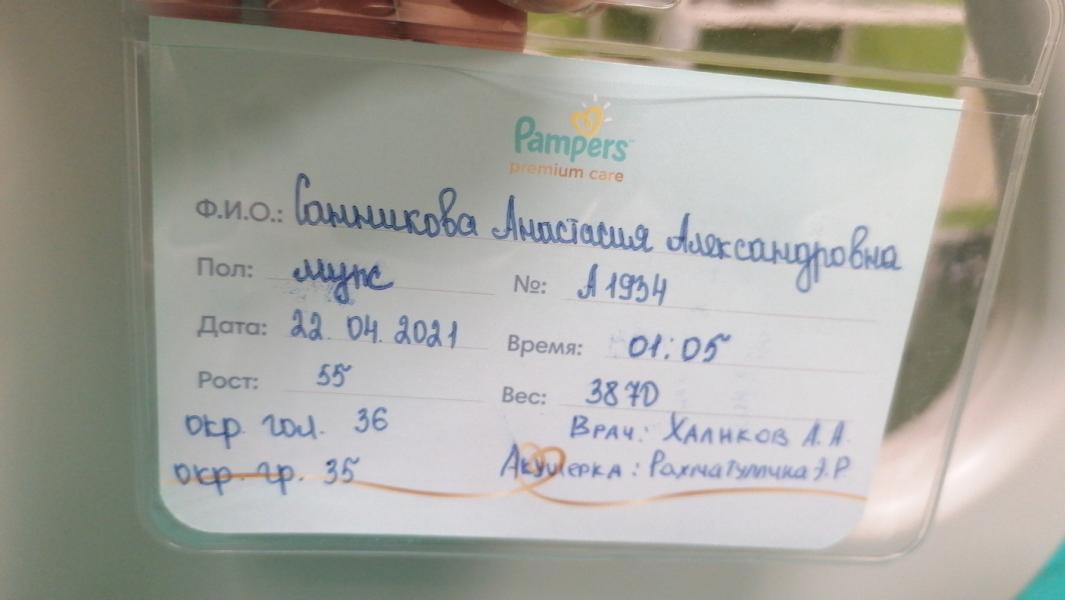 Pampers
premium care
Ф.И.О.: Санникова Анастасия Александровна
Пол: муж №: А1934
Дата: 22. 04. 2021 Время: 01:05
Рост: 55 Вес: 3870
окр. гол. 36 Врач: Халиков А. А.
окр. гр. 35 Акушерка: Рахматуллина Э.Р